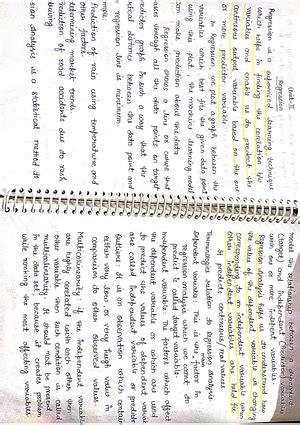 Unit-II
Regression
Regression is a supervised learning technique
which helps in finding the correlation b/w
variables and enable us to predict the
continuous output variable based on the
In Regression, we plot a graph between the
variables which best fits the given data point
using this plot, the machine learning model
can make prediction about the data
Regression shows a line or curve that
passes through all the data points on target
predictor graph in such a way that the
vertical distance between the data point and
regression line is minimum.
Prediction of rain using temperature and
other factors
Determining market trends
Prediction of road accidents due to rash
driving
analysis is a statistical method to
model the relationship between a dependent
(target) and independent variables
with one or more independent variables.
Regression analysis helps us to understand how
the value of the dependent variable is changing
corresponding to an independent variable when
other independent variables are held fix
It predicts continuous/real values
Terminologies related to Regression analysis
Dependent variable: The factor in
regression analysis which we want to
predict is called target variable.
Independent variable: The factors which affect
the dependent variable or which are used
to predict the values of dependent variable
are called Independent variable or predictor
Outliers: It is an observation which contain
either very low or very high value in
comparison to other observed values
Multicollinearity: If the independent variables
are highly correlated with each other than
other variable, such condition is called
multicollinearity. It should not be present
in the data set because it creates problem
while ranking the most affecting variables